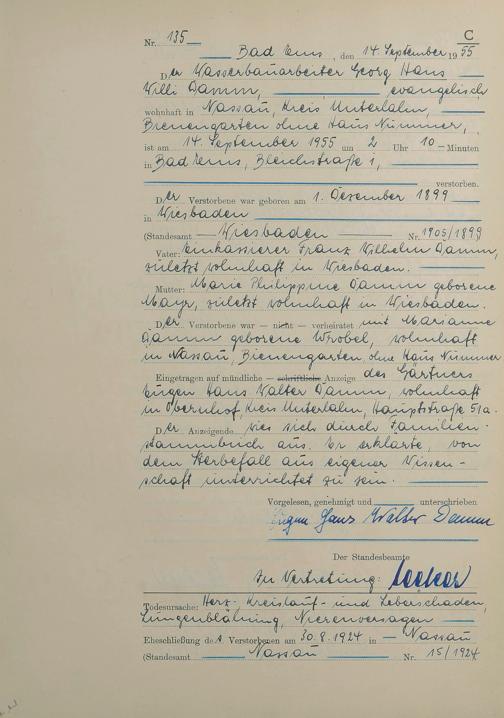 C
Nr. 135
Bad Ems, den 14. September 1955
Der Wasserbauarbeiter Georg Hans
Willi Damm, evangelisch
wohnhaft in Nassau, Kreis Unterlahn,
Bienengarten ohne Haus Nummer,
ist am 14. September 1955 um 2 Uhr 10 Minuten
in Bad Ems, Bleichstraße 1,
verstorben.
Der Verstorbene war geboren am 1. Dezember 1899
in Wiesbaden
(Standesamt Wiesbaden Nr. 1905/1899
Vater: Einkassierer Franz Wilhelm Damm,
zuletzt wohnhaft in Wiesbaden.
Mutter: Marie Philippine Damm geborene
Mayr, zuletzt wohnhaft in Wiesbaden.
Der Verstorbene war — nicht — verheiratet mit Marianne
Damm geborene Wrobel, wohnhaft
in Nassau, Bienengarten ohne Haus Nummer
Eingetragen auf mündliche — schriftliche — Anzeige des Gärtners
Eugen Hans Walter Damm, wohnhaft
in Obernhof, Kreis Unterlahn, Hauptstraße 51a.
Der Anzeigende wies sich durch Familien-
stammbuch aus. Er erklärte, von
dem Sterbefall aus eigener Wissen-
schaft unterrichtet zu sein.
Vorgelesen, genehmigt und unterschrieben
Eugen Hans Walter Damm
Der Standesbeamte
In Vertretung:
Todesursache: Herz-, Kreislauf- und Leberschaden,
Lungenblähung, Nierenversagen
Eheschließung des Verstorbenen am 30.8.1924 in Nassau
(Standesamt Nassau Nr. 15/1924